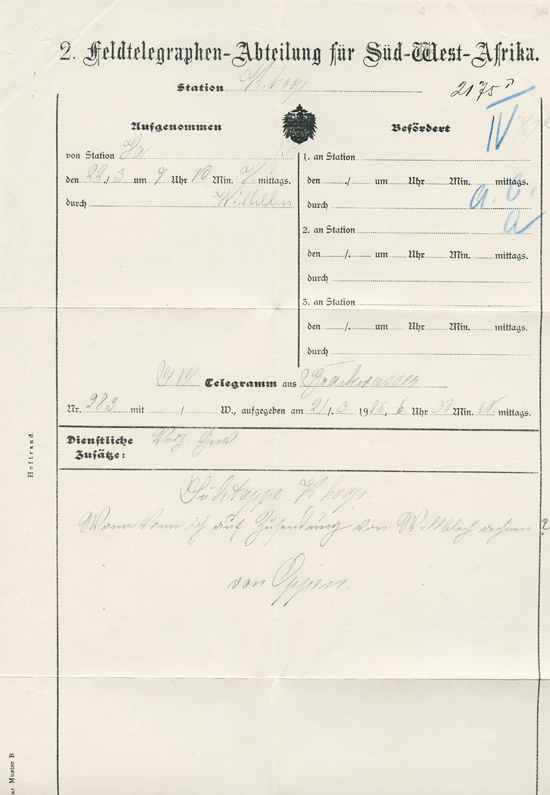 2. Feldtelegraphen-Abteilung für Süd-West-Afrika.
Station
2175
IV
Aufgenommen
von Station
den 22./3 um 9 Uhr 10 Min. mittags.
durch
Befördert
1. an Station
den ./. um Uhr Min. mittags.
durch
a. C.
a
2. an Station
den ./. um Uhr Min. mittags.
durch
3. an Station
den ./. um Uhr Min. mittags.
durch
Telegramm aus Brackwasser
Nr. 283 mit / W., aufgegeben am 21/.3 1906, 6 Uhr 30 Min. N mittags.
Dienstliche
Zusätze:
Südetappe
Wann kann ich auf Zusendung von Wellblech rechnen?
von Oppen.
Heftrand.
ar Muster B